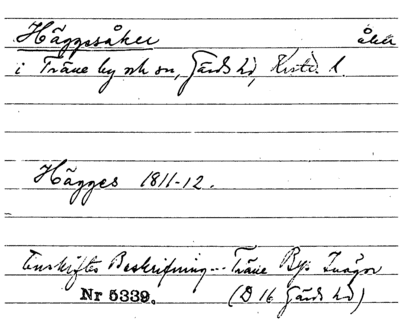 Häggesåker åker
i Träne by ock sn, Gärds hd, Krist. l.
Hägges 1811-12.
Enskiftes Beskrifning -- Träne Bys Inägor
Nr 5339. (D 16 Gärds hd)